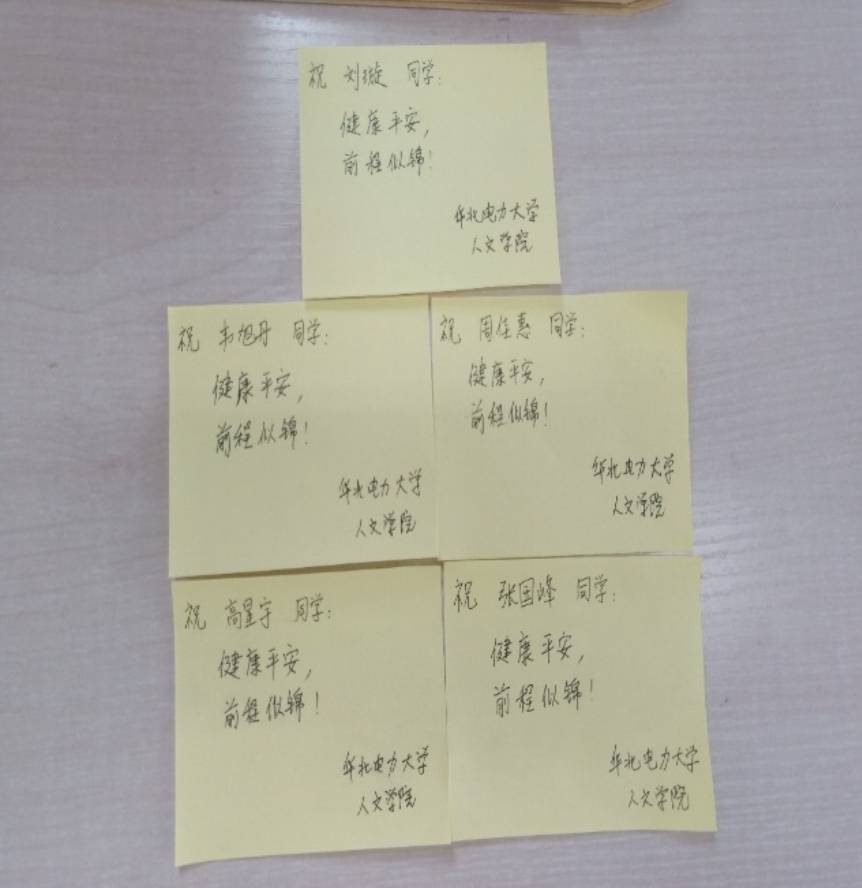 祝 刘璇 同学:
健康平安,
前程似锦!
华北电力大学
人文学院
祝 韦旭丹 同学:
健康平安,
前程似锦!
华北电力大学
人文学院
祝 周佳惠 同学:
健康平安,
前程似锦!
华北电力大学
人文学院
祝 高星宇 同学:
健康平安,
前程似锦!
华北电力大学
人文学院
祝 张国峰 同学:
健康平安,
前程似锦!
华北电力大学
人文学院